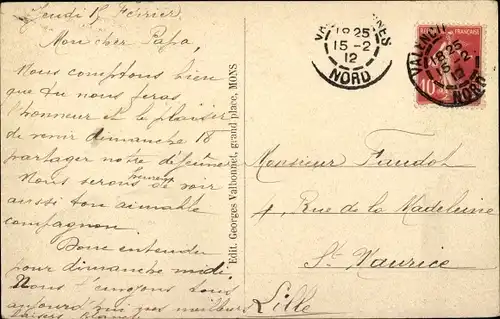 Jeudi 15 Février
Mon cher Papa,
Nous comptons bien
que tu nous feras
l'honneur et le plaisir
de venir dimanche 18
partager notre déjeuner
Nous serons heureux de voir
aussi ton aimable
compagnon.
Bone entendu
pour dimanche midi.
Nous t'envoyons tous
aujourd'hui nos meilleurs
baisers
Edit. Georges Valbonnet, grand place, MONS
VALENCIENNES
18 25
15-2
12
NORD
FRANÇAISE
10
VALENCIENNES
18 25
15-2
12
NORD
Monsieur Faudot
4, Rue de la Madeleine
St Maurice
Lille